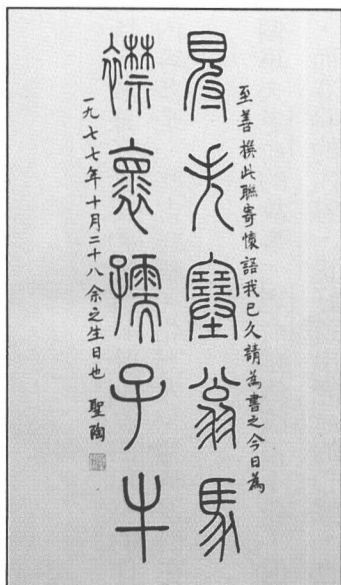 至善撰此聯寄懷語我已久請為書之今日為
㝵失塞翁馬
襟褱孺子牛
一九七七年十月二十八余之生日也 聖陶